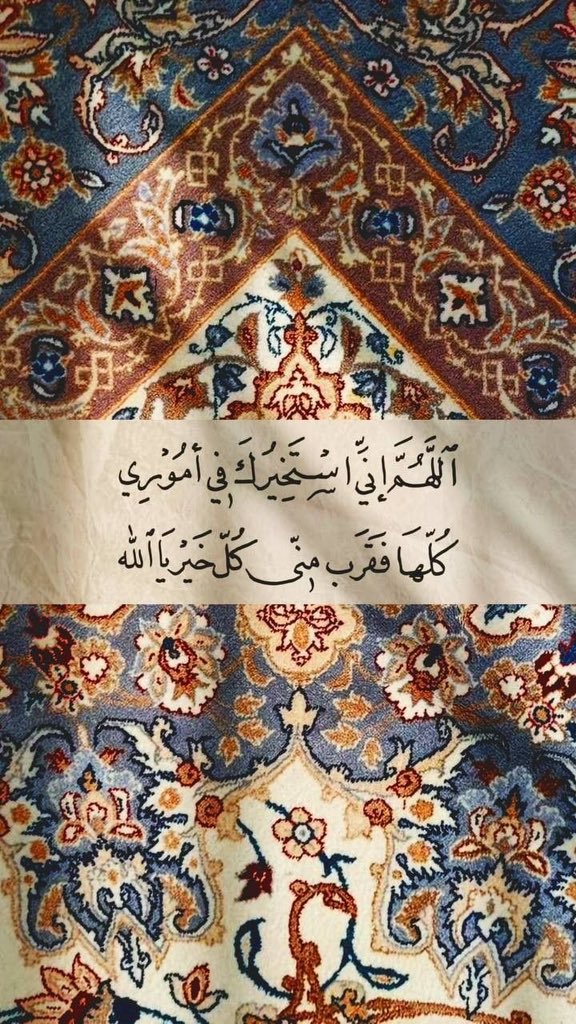 ٱللَّهُمَّ إِنِّي اسْتَخِيرُكَ فِي أمُوْرِي
كُلّهَا فَقَرَب مِنّي كُلّ خَيْر يَا ٱللّه